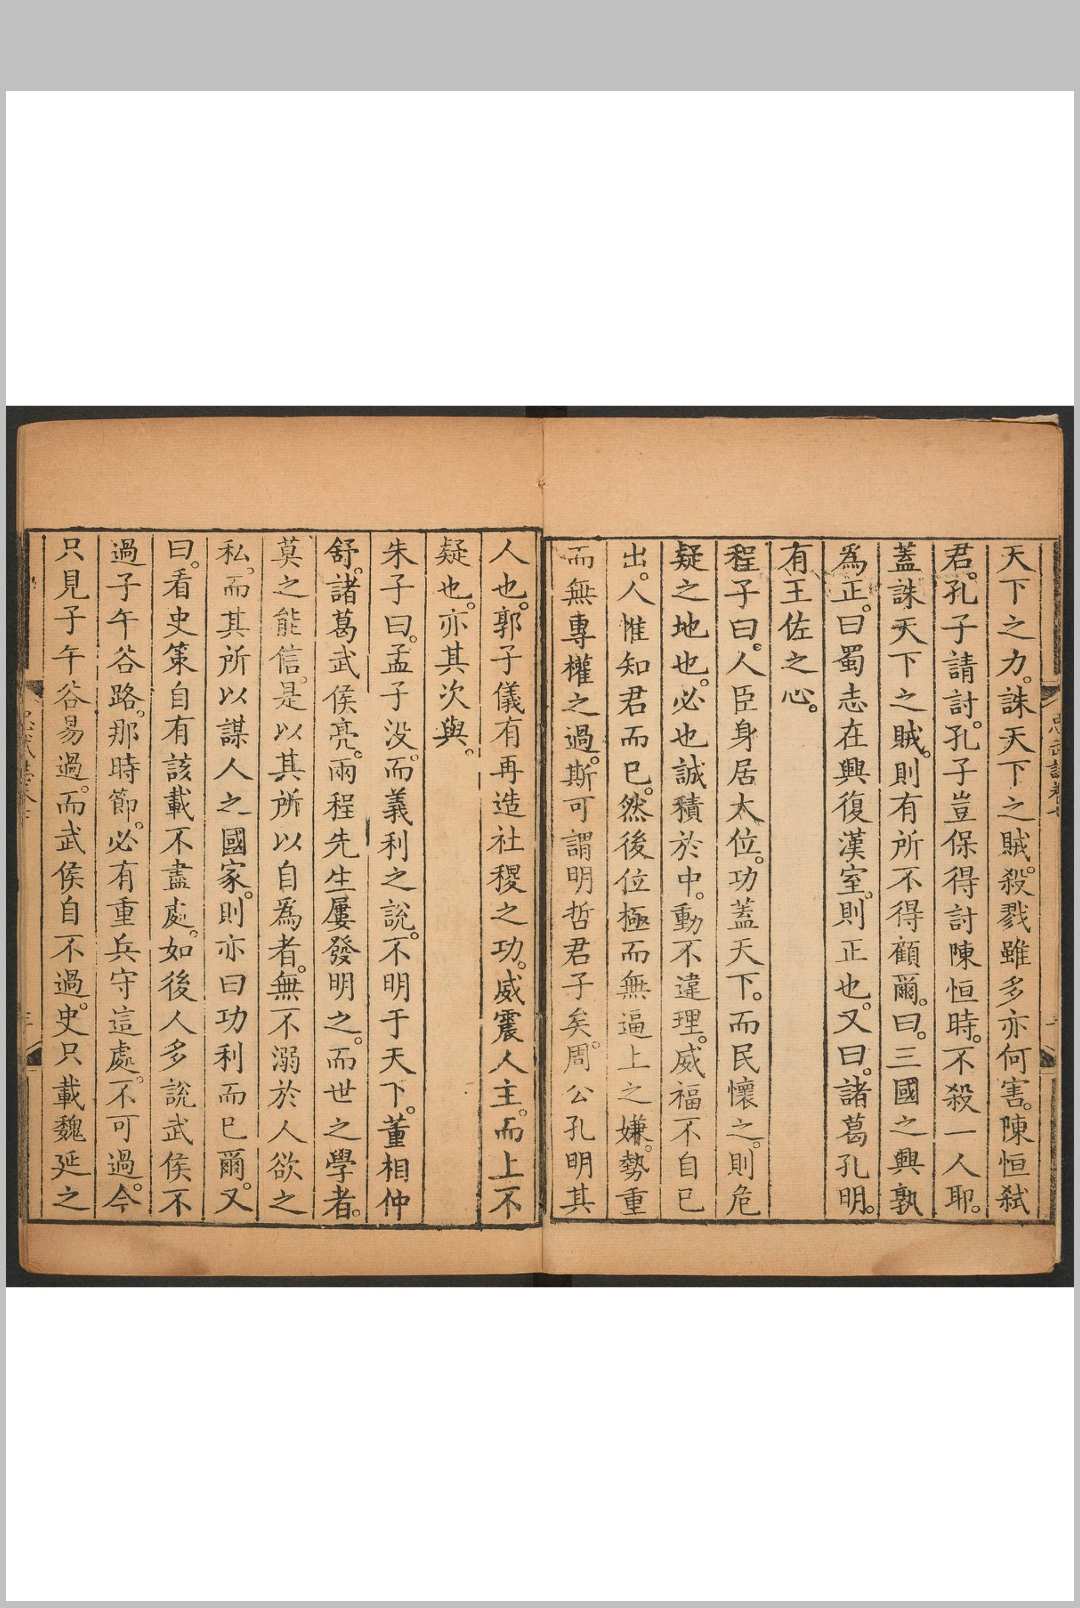 天下之力。誅天下之賊。殺戮雖多亦何害。陳恒弑
君。孔子請討。孔子豈保得討陳恒時。不殺一人耶。
蓋誅天下之賊。則有所不得顧爾。曰。三國之興孰
為正。曰蜀志在興復漢室。則正也。又曰。諸葛孔明。
有王佐之心。
程子曰。人臣身居大位。功蓋天下。而民懷之。則危
疑之地也。必也誠積於中。動不違理。威福不自己
出。人惟知君而已。然後位極而無逼上之嫌。勢重
而無專權之過。斯可謂明哲君子矣。周公孔明其
人也。郭子儀有再造社稷之功。威震人主。而上不
疑也。亦其次與。
朱子曰。孟子没。而義利之說。不明于天下。董相仲
舒。諸葛武侯亮。兩程先生屢發明之。而世之學者。
莫之能信。是以其所以自為者。無不溺於人欲之
私。而其所以謀人之國家。則亦曰功利而已爾。又
曰。看史策自有該載不盡處。如後人多說武侯不
過子午谷路。那時節。必有重兵守這處。不可過。今
只見子午谷易過。而武侯自不過。史只載魏延之